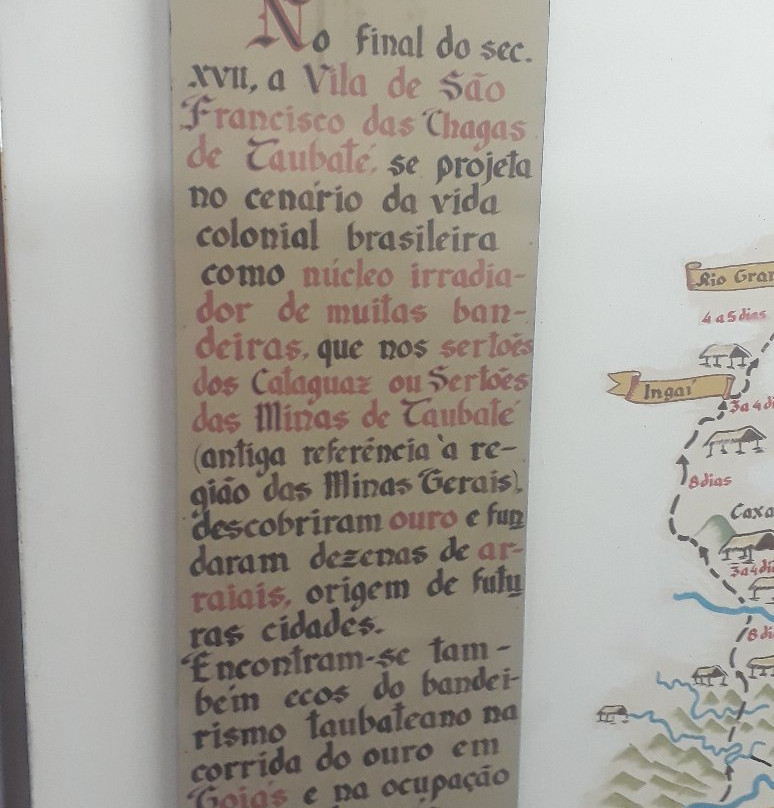 No final do sec.
XVII, a Vila de São
Francisco das Chagas
de Taubaté, se projeta
no cenário da vida
colonial brasileira
como núcleo irradia-
dor de muitas ban-
deiras, que nos sertões
dos Cataguaz ou Sertões
das Minas de Taubaté
(antiga referência à re-
gião das Minas Gerais),
descobriram ouro e fun
daram dezenas de ar-
raiais, origem de futu
ras cidades.
Encontram-se tam-
bém ecos do bandei-
rismo taubateano na
corrida do ouro em
Goiás e na ocupação
Rio Gran
4 a 5 dias
Ingaí
3 a 4 di
8 dias
Caxa
3 a 4 di
8 di